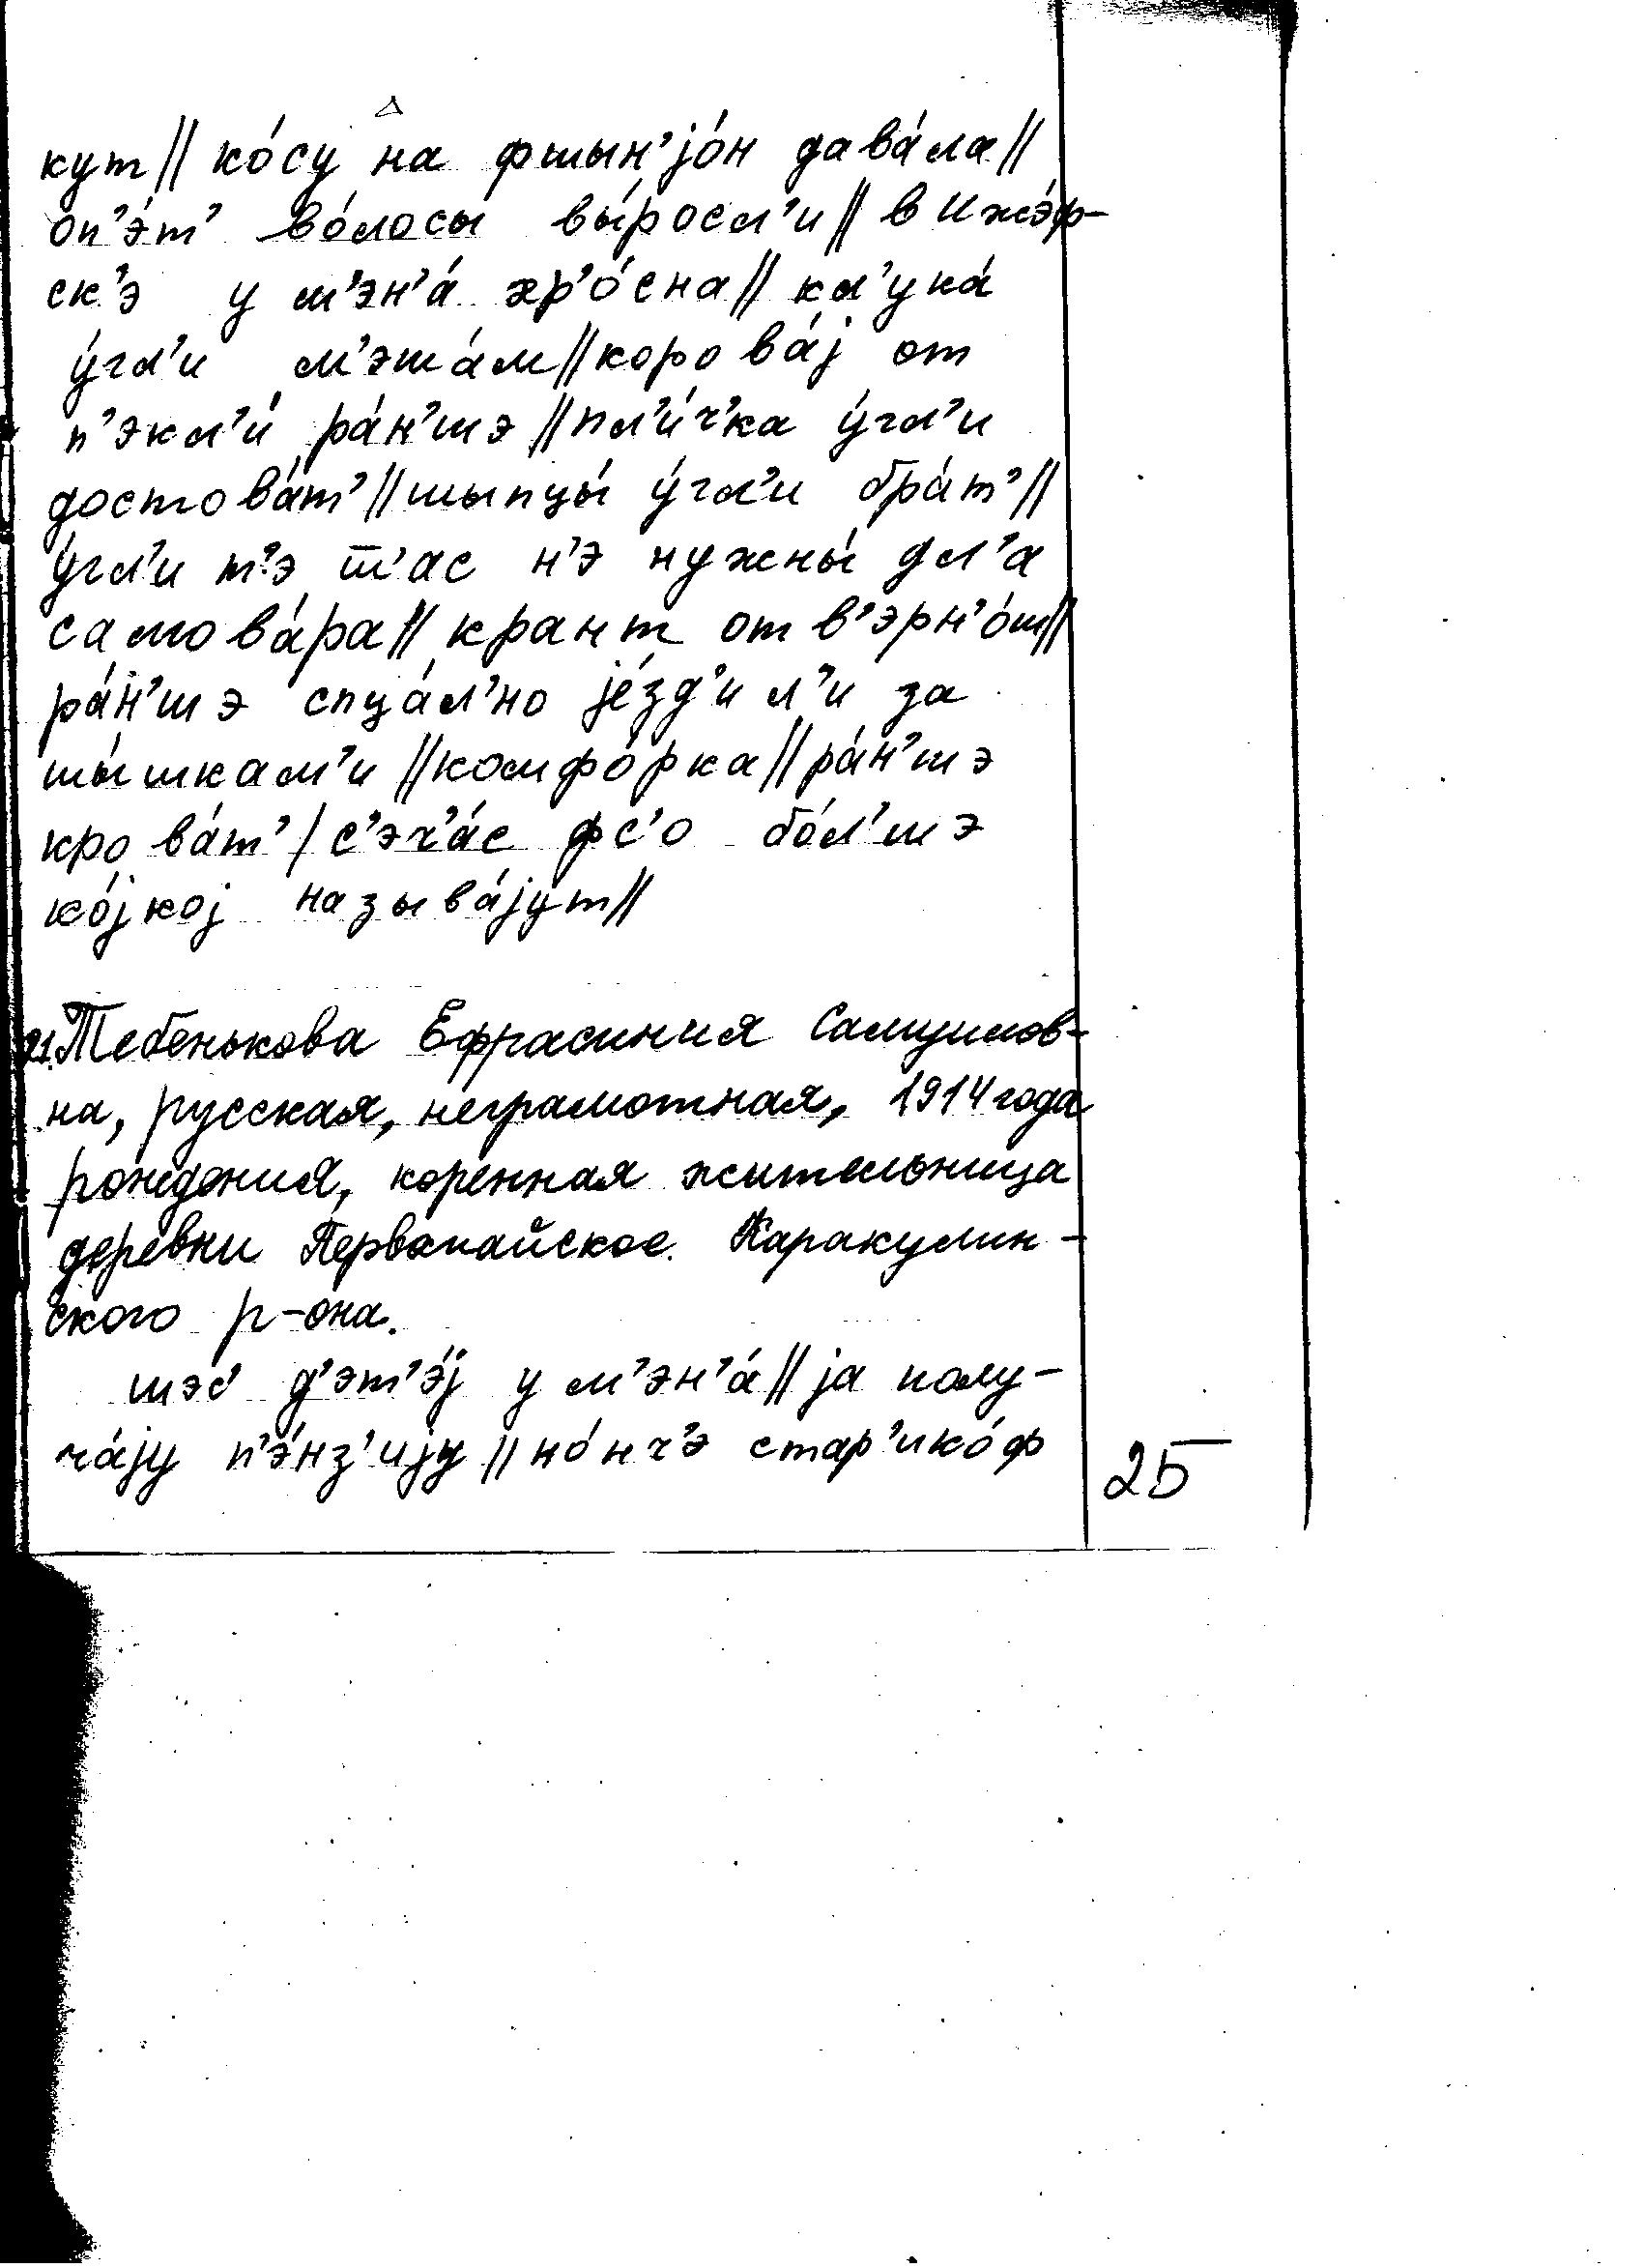 кут// ко́су на фшын’jо́н дава́ла//
оп’э́т’ во́лосы вы́росл’и// в ижэ́ф-
ск’э у м’эн’а́ хр’о́сна// кл’ука́
у́гл’и м’эша́м//корова́j от
п’экл’и́ ра́н’шэ//пл’и́ч’ка у́гл’и
достова́т’//шыпцы́ у́гл’и бра́т’//
у́гл’и т’э т’ас н’э нужны́ дл’а
самова́ра// крант отв’эрн’о́ш//
ра́н’шэ спца́л’но jе́зд’ил’и за
шы́шкам’и//комфо́рка//ра́н’шэ
крова́т’/с’эч’а́с фс’о бо́л’шэ
ко́jкоj называ́jут//
21.Тебенькова Ефрасиния Самуилов-
на, русская, неграмотная, 1914 года
рождения, коренная жительница
деревни Первомайское Каракулин-
ского р-она.
шэс’ д’эт’э́j у м’эн’а́//jа полу-
ча́jу п’э́нз’иjу//но́нч’э стар’ико́ф
25